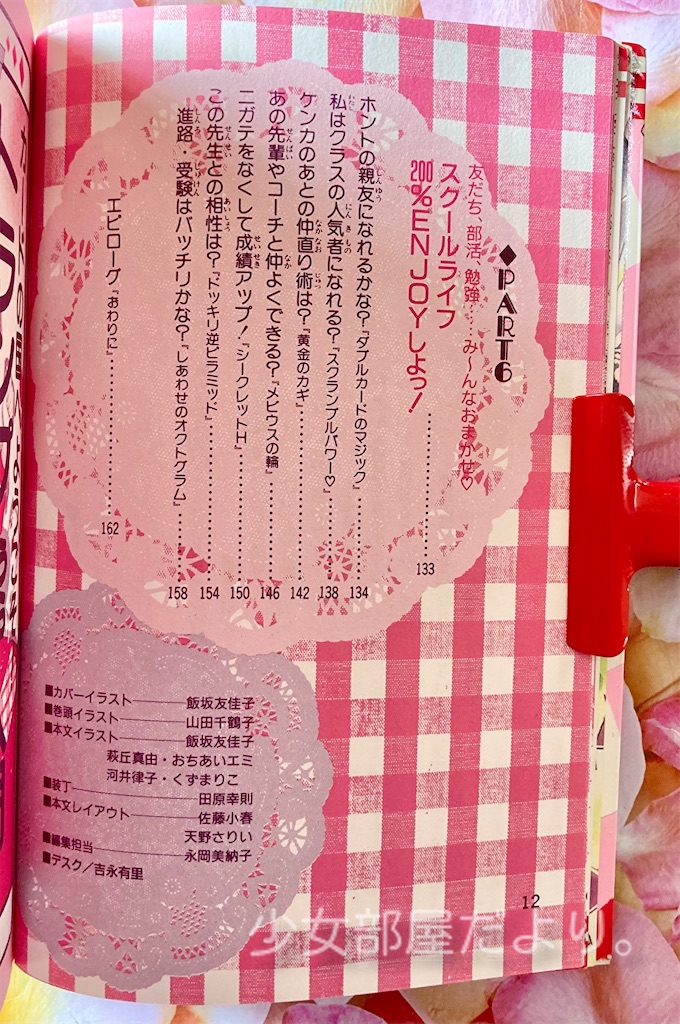 ◆PART6
友だち、部活、勉強……み〜んなおまかせ♡
スクールライフ
200%ENJOYしよっ!……133
ホントの親友になれるかな?『ダブルカードのマジック』……134
私はクラスの人気者になれる?『スクランブルパワー♡』……138
ケンカのあとの仲直り術は?『黄金のカギ』……142
あの先輩やコーチと仲よくできる?『メビウスの輪』……146
ニガテをなくして成績アップ!『シークレットH』……150
この先生との相性は?『ドッキリ逆ピラミッド』……154
進路・受験はバッチリかな?『しあわせのオクトグラム』……158
エピローグ『おわりに』……162
■カバーイラスト――飯坂友佳子
■巻頭イラスト――山田千鶴子
■本文イラスト――飯坂友佳子
萩丘真由・おちあいエミ
河井律子・くずまりこ
■装丁――田原幸則
■本文レイアウト――佐藤小春
天野さりい
■編集担当――永岡美納子
■デスク/吉永有里
12
少女部屋だより。